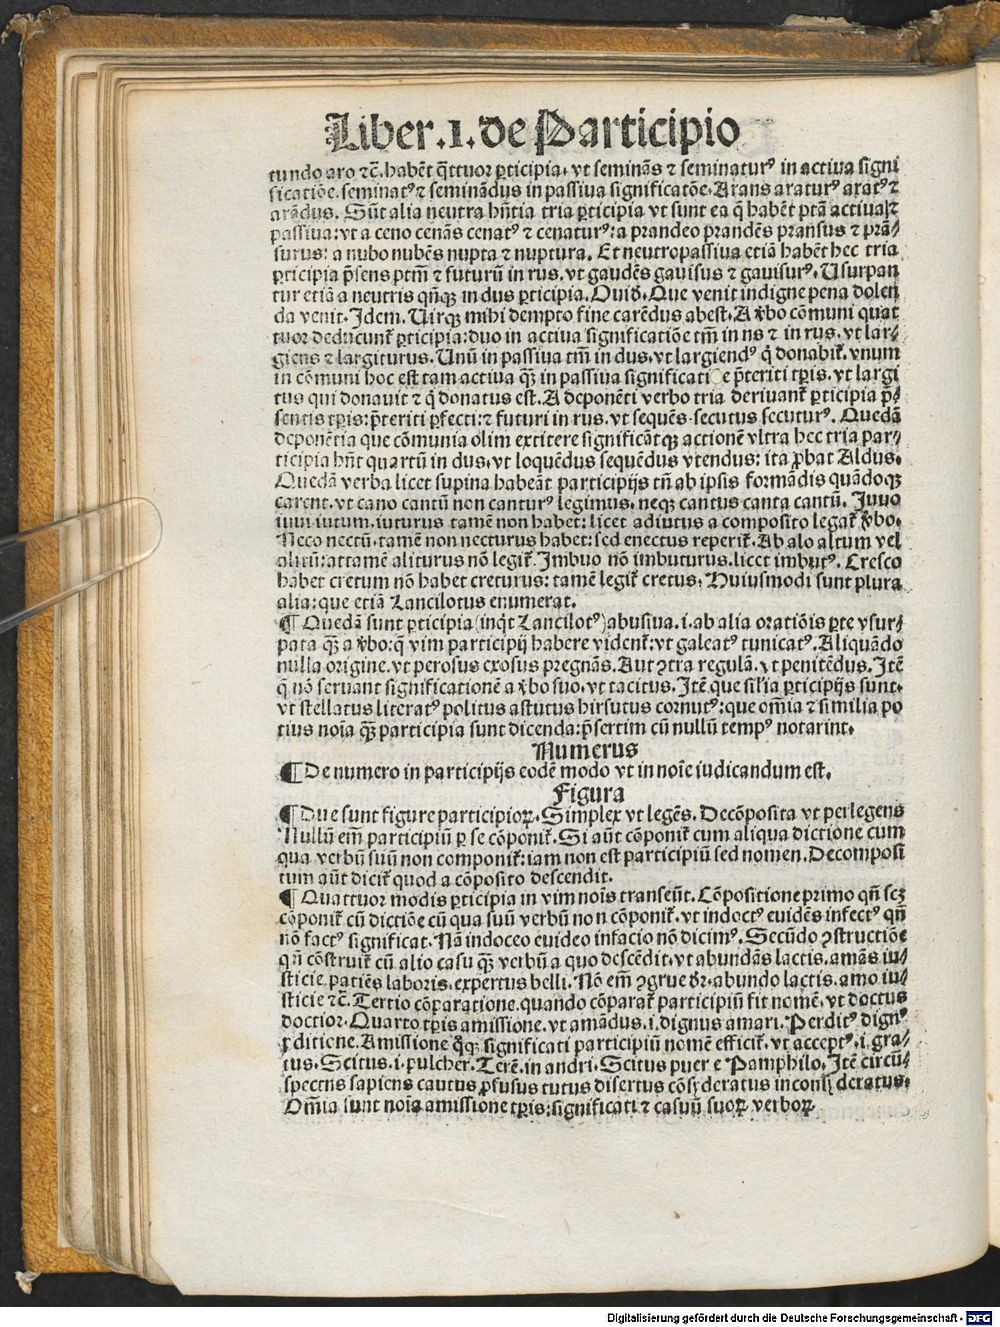 Liber .1. de Participio
tundo aro ⁊c̃. habẽt q̃ttuor ꝑticipia. vt seminãs ⁊ seminaturꝰ in actiua signi
ficatiõe. seminatꝰ ⁊ seminãdus in passiua significatõe. Arans araturꝰ aratꝰ ⁊
arãdus. Sũt alia neutra hñtia tria ꝑticipia vt sunt ea q̃ habẽt ptã actiua ⁊
passiua: vt a ceno cenãs cenatꝰ ⁊ cenaturꝰ: a prandeo prandẽs pransus ⁊ prã⸗
surus: a nubo nubẽs nupta ⁊ nuptura. Et neutropassiua etiã habẽt hec tria
ꝑticipia p̃sens ptm̃ ⁊ futurũ in rus. vt gaudẽs gauisus ⁊ gauisurꝰ. Usurpan
tur etiã a neutris qñqꝫ in dus ꝑticipia. Ouid̕. Que venit indigne pena dolen
da venit. Idem. Uirqꝫ mihi dempto fine carẽdus abest. A v̕bo cõmuni quat
tuor deducunt̃ ꝑticipia: duo in actiua significatiõe tm̃ in ns ⁊ in rus. vt lar⸗
giens ⁊ largiturus. Unũ in passiua tm̃ in dus. vt largiendꝰ q̕ donabit̃. vnum
in cõmuni hoc est tam actiua qꝫ̃ in passiua significati e p̃teriti tꝑis. vt largi
tus qui donauit ⁊ q̕ donatus est. A deponẽti verbo tria deriuant̃ ꝑticipia p̃⸗
sentis tꝑis: p̃teriti ꝑfecti: ⁊ futuri in rus. vt sequẽs secutus secuturꝰ. Quedã
deponẽtia que cõmunia olim extitere significãtqꝫ actionẽ vltra hec tria par⸗
ticipia hñt quartũ in dus. vt loquẽdus sequẽdus vtendus: ita ꝓbat Aldus.
Quedã verba licet supina habeãt participijs tñ ab ipsis formãdis quãdoqꝫ
carent. vt cano cantũ non canturꝰ legimus. neqꝫ cantus canta cantũ. Iuuo
iuui iutum. iuturus tamẽ non habet: licet adiutus a composito legat̃ v̕bo.
Neco nectũ. tamẽ non necturus habet: sed enectus reperit̃. Ab alo altum vel
alitũ: attamẽ aliturus nõ legit̃. Imbuo nõ imbuturus. licet imbutꝰ. Cresco
habet cretum nõ habet creturus: tamẽ legit̃ cretus. Huiusmodi sunt plura
alia: que etiã Lancilotus enumerat.
¶ Quedã sunt ꝑticipia (inqt̕ Lancilotꝰ) abusiua. i. ab alia oratiõis ꝑte vsur⸗
pata qꝫ̃ a v̕bo: q̃ vim participij habere vident̃: vt galeatꝰ tunicatꝰ. Aliquãdo
nulla origine. vt perosus exosus pregnãs. Aut ꝯtra regulã. vt penitẽdus. Itẽ
q̃ nõ seruant significationẽ a v̕bo suo. vt tacitus. Itẽ que sil̕ia ꝑticipijs sunt.
vt stellatus literatꝰ politus astutus hirsutus cornutꝰ: que om̃ia ⁊ similia po
tius noĩa qꝫ̃ participia sunt dicenda: p̃sertim cũ nullũ tempꝰ notarint.
Numerus
¶ De numero in participijs eodẽ modo vt in noĩe iudicandum est.
Figura
¶ Due sunt figure participioꝝ. Simplex vt legẽs. Decõposita vt perlegens
Nullũ em̃ participiũ ꝑ se cõponit̃. Si aũt cõponit̃ cum aliqua dictione cum
qua verbũ suũ non componit̃: iam non est participiũ sed nomen. Decomposi
tum aũt dicit̃ quod a cõposito descendit.
¶ Quattuor modis ꝑticipia in vim nois transeũt. Cõpositione primo qñ scꝫ
cõponit̃ cũ dictiõe cũ qua suũ verbũ non cõponit̃. vt indoctꝰ euidẽs infectꝰ qñ
nõ factꝰ significat. Nã indoceo euideo infacio nõ dicimꝰ. Secũdo ꝯstructiõe
qñ cõstruit̃ cũ alio casu qꝫ̃ verbũ a quo descẽdit. vt abundãs lactis. amãs iu⸗
sticie. patiẽs laboris. expertus belli. Nõ em̃ ꝯgrue dr̃. abundo lactis. amo iu⸗
sticie ⁊c̃. Tertio cõparatione. quando cõparat̃ participiũ fit nomẽ. vt doctus
doctior. Quarto tꝑis amissione. vt amãdus. i. dignus amari. Perditꝰ dignꝰ
ꝑditione. Amissione q̕qꝫ significati participiũ nomẽ efficit̃. vt acceptꝰ. i. gra⸗
tus. Scitus. i. pulcher. Terẽ. in andri. Scitus puer e Pamphilo. Itẽ circũ⸗
spectus sapiens cautus ꝓfusus tutus disertus cõsyderatus inconsyderatus.
Om̃ia sunt noĩa amissione tꝑis: significati ⁊ casuũ suoꝝ verboꝝ
Digitalisierung gefördert durch die Deutsche Forschungsgemeinschaft - DFG